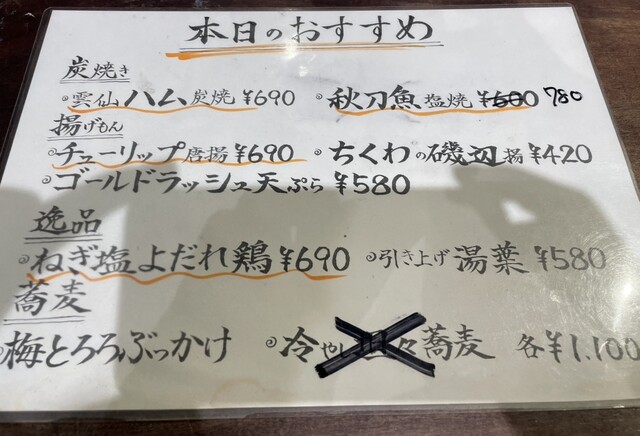 本日のおすすめ
炭焼き
雲仙ハム炭焼¥690 秋刀魚塩焼 780
揚げもん
チューリップ唐揚¥690 ちくわの磯辺揚¥420
ゴールドラッシュ天ぷら¥580
逸品
ねぎ塩よだれ鶏¥690 引き上げ湯葉¥580
蕎麦
梅とろろぶっかけ 冷やし 蕎麦 各¥1,100